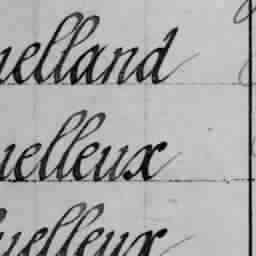 uelland
uelleux
uelleux